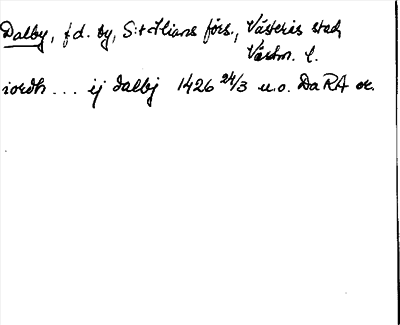 Dalby, f.d. by, S:t Ilians förs., Västerås stad,
Västm. l.
iordh ... ij dalbj 1426 24/3 u.o. DaRA or.